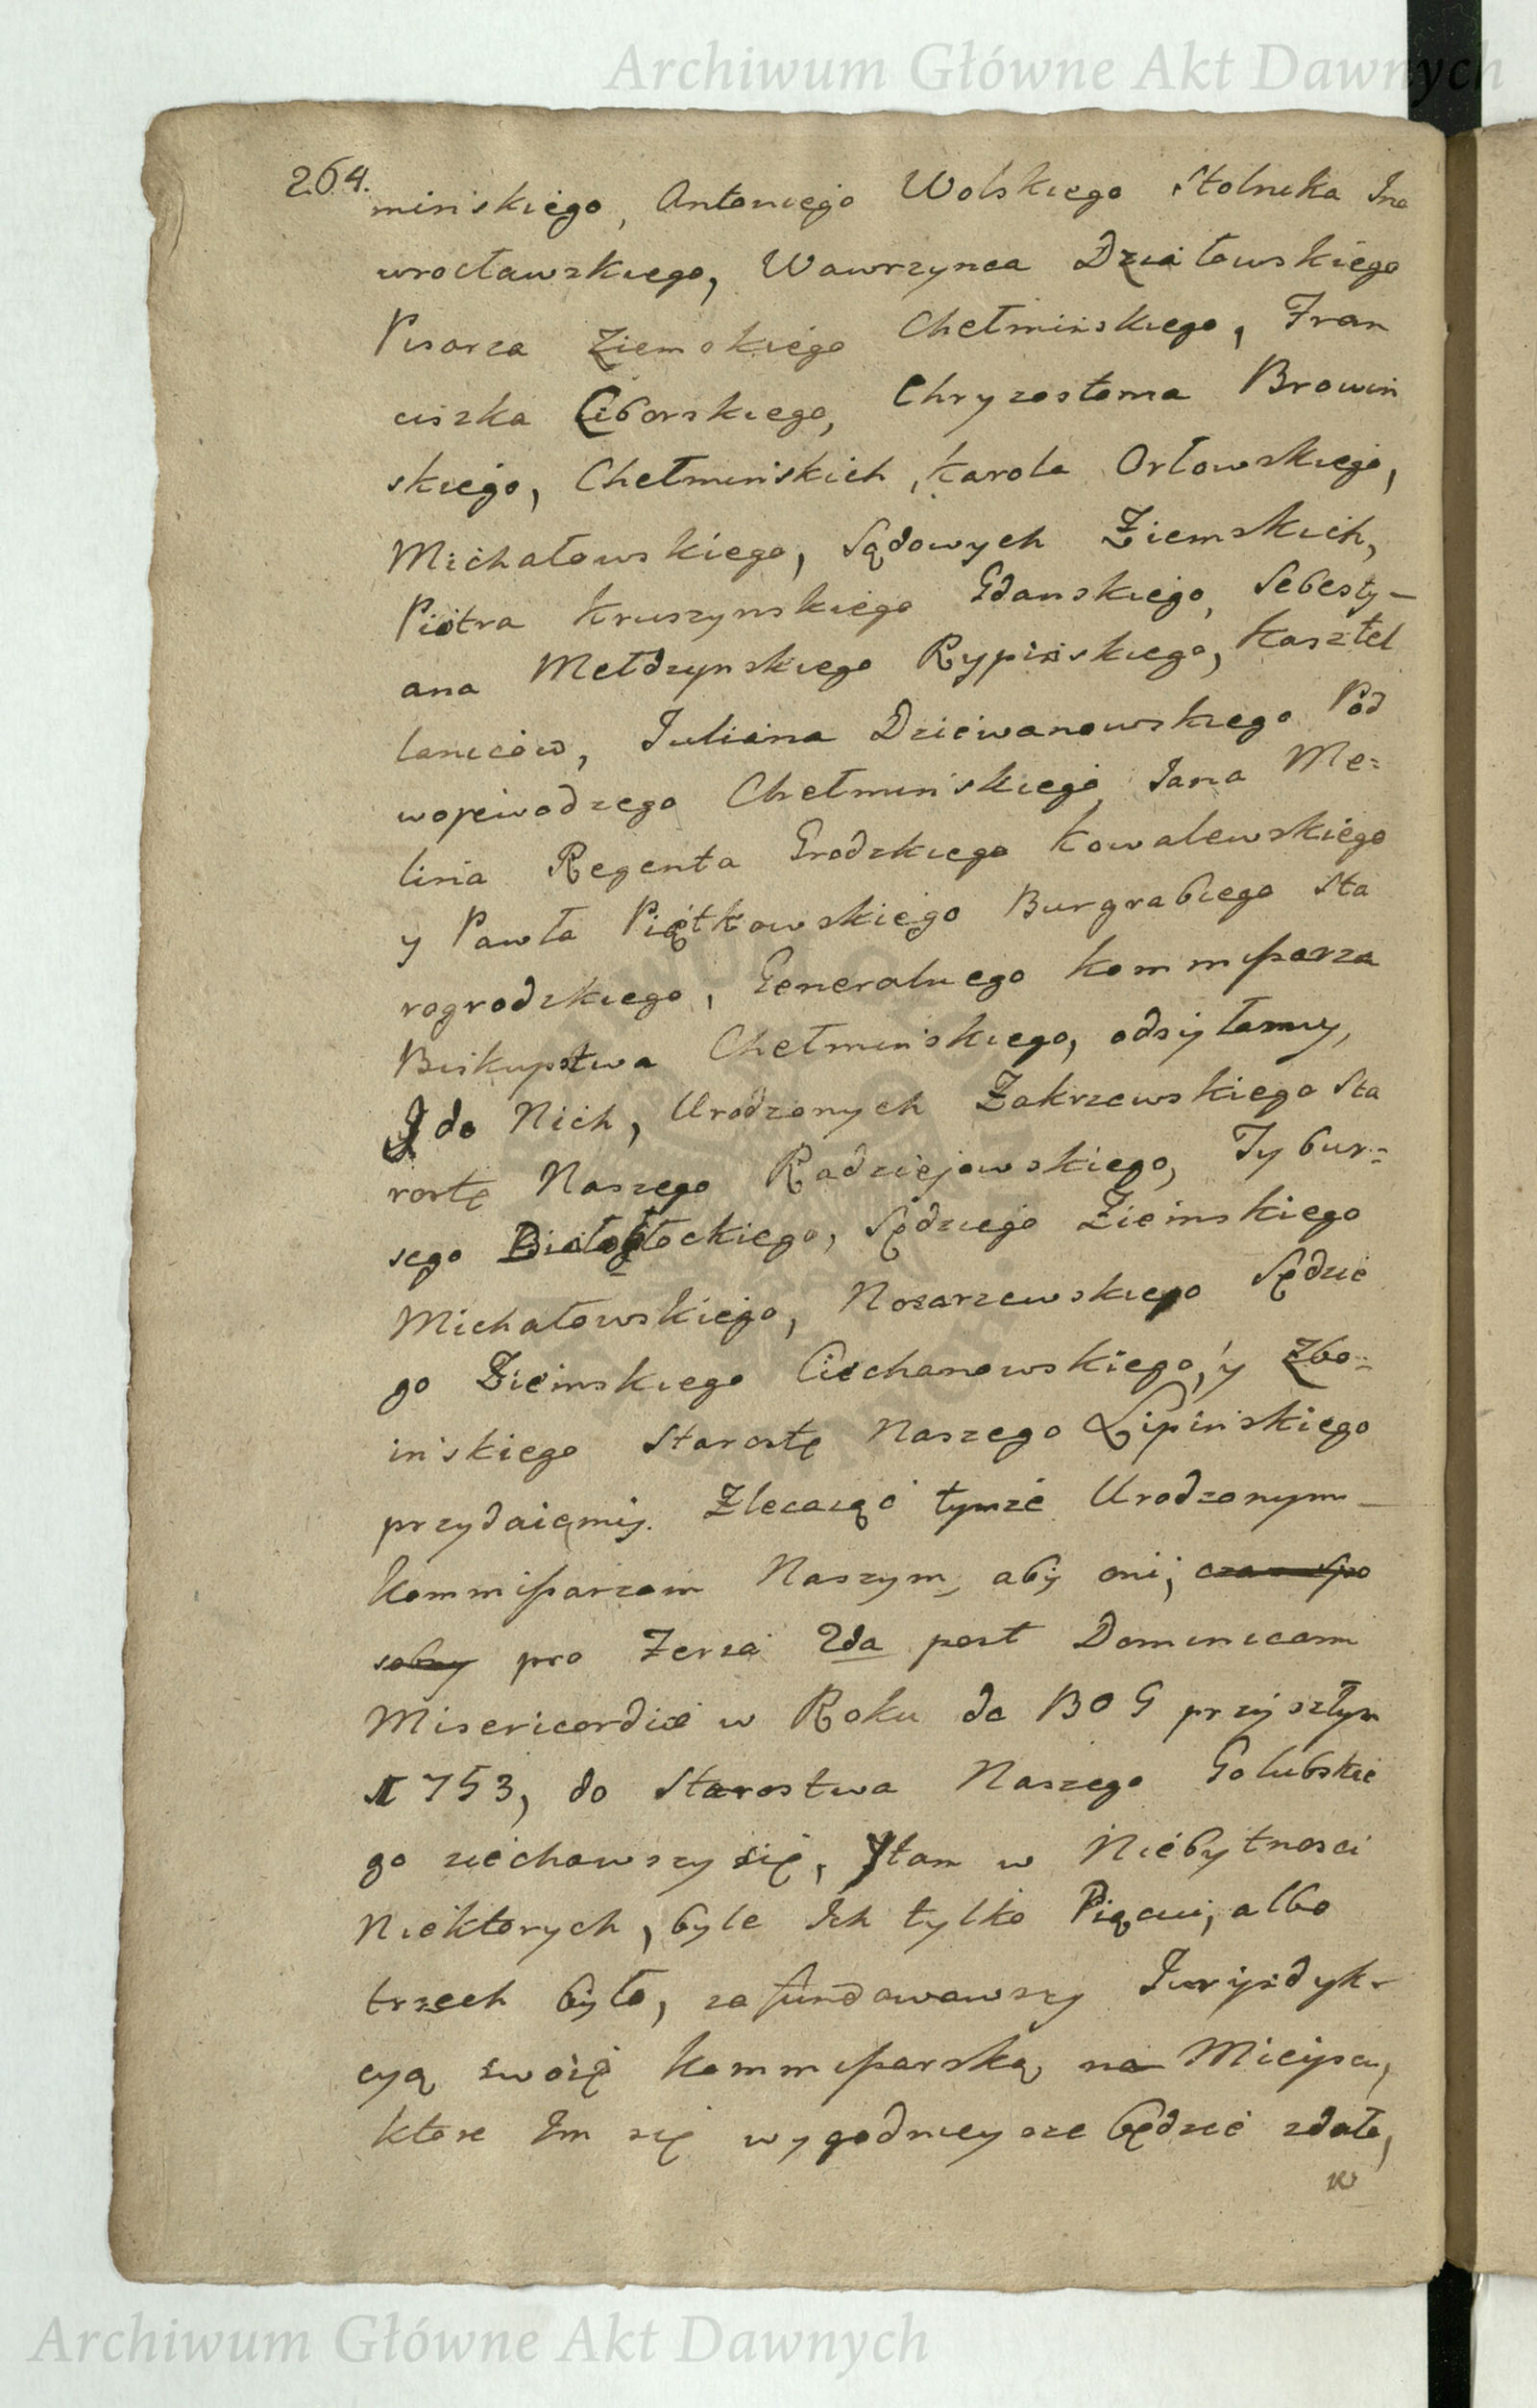 Archiwum Główne Akt Dawnych
264.
mińskiego, Antoniego Wolskiego Stolnika Ino
wrocławskiego, Wawrzynca Działowskiego
Pisarza Ziemskiego Chełmińskiego, Fran
ciszka Ciborskiego, Chryzostoma Browiń
skiego, Chełmińskich, Karola Orłowskiego,
Michałowskiego, Sądowych Ziemskich,
Piotra Kruszynskiego Gdanskiego, Sebesty-
ana Mełdzynskiego Rypińskiego, Kasztel
laniców, Juliana Dziewanowskiego Pod
wojewodzego Chełmińskiego, Jana Me=
lina Regenta Grodzkiego Kowalewskiego
y Pawła Piątkowskiego Burgrabiego Sta
rogrodzkiego, Generalnego Kommissarza
Biskupstwa Chełmińskiego, odsyłamy,
I do Nich, Urodzonych Zakrzewskiego Sta
rostę Naszego Radziejowskiego, Tybur=
sego Białobłockiego, Sędziego Ziemskiego
Michałowskiego, Nosarzewskiego Sędzie
go Ziemskiego Ciechanowskiego, y Zbo=
ińskiego Starostę Naszego Lipińskiego
przydaiemy. Zlecaiąc tymże Urodzonym
Kommissarzom Naszym, aby oni, czas spo
sobny pro Feria 2da post Dominicam
Misericordiæ w Roku da BOG przyszłym
1753, do Starostwa Naszego Golubskie
go ziechawszy się, Y tam w Niebytnosci
Niektorych, byle Ich tylko Pięciu, albo
trzech było, zafundowawszy Juryzdyk-
cyą swoię Kommissarską, na Mieyscu,
ktore Im się wygodnieysze będzie zdało,
w
Archiwum Główne Akt Dawnych